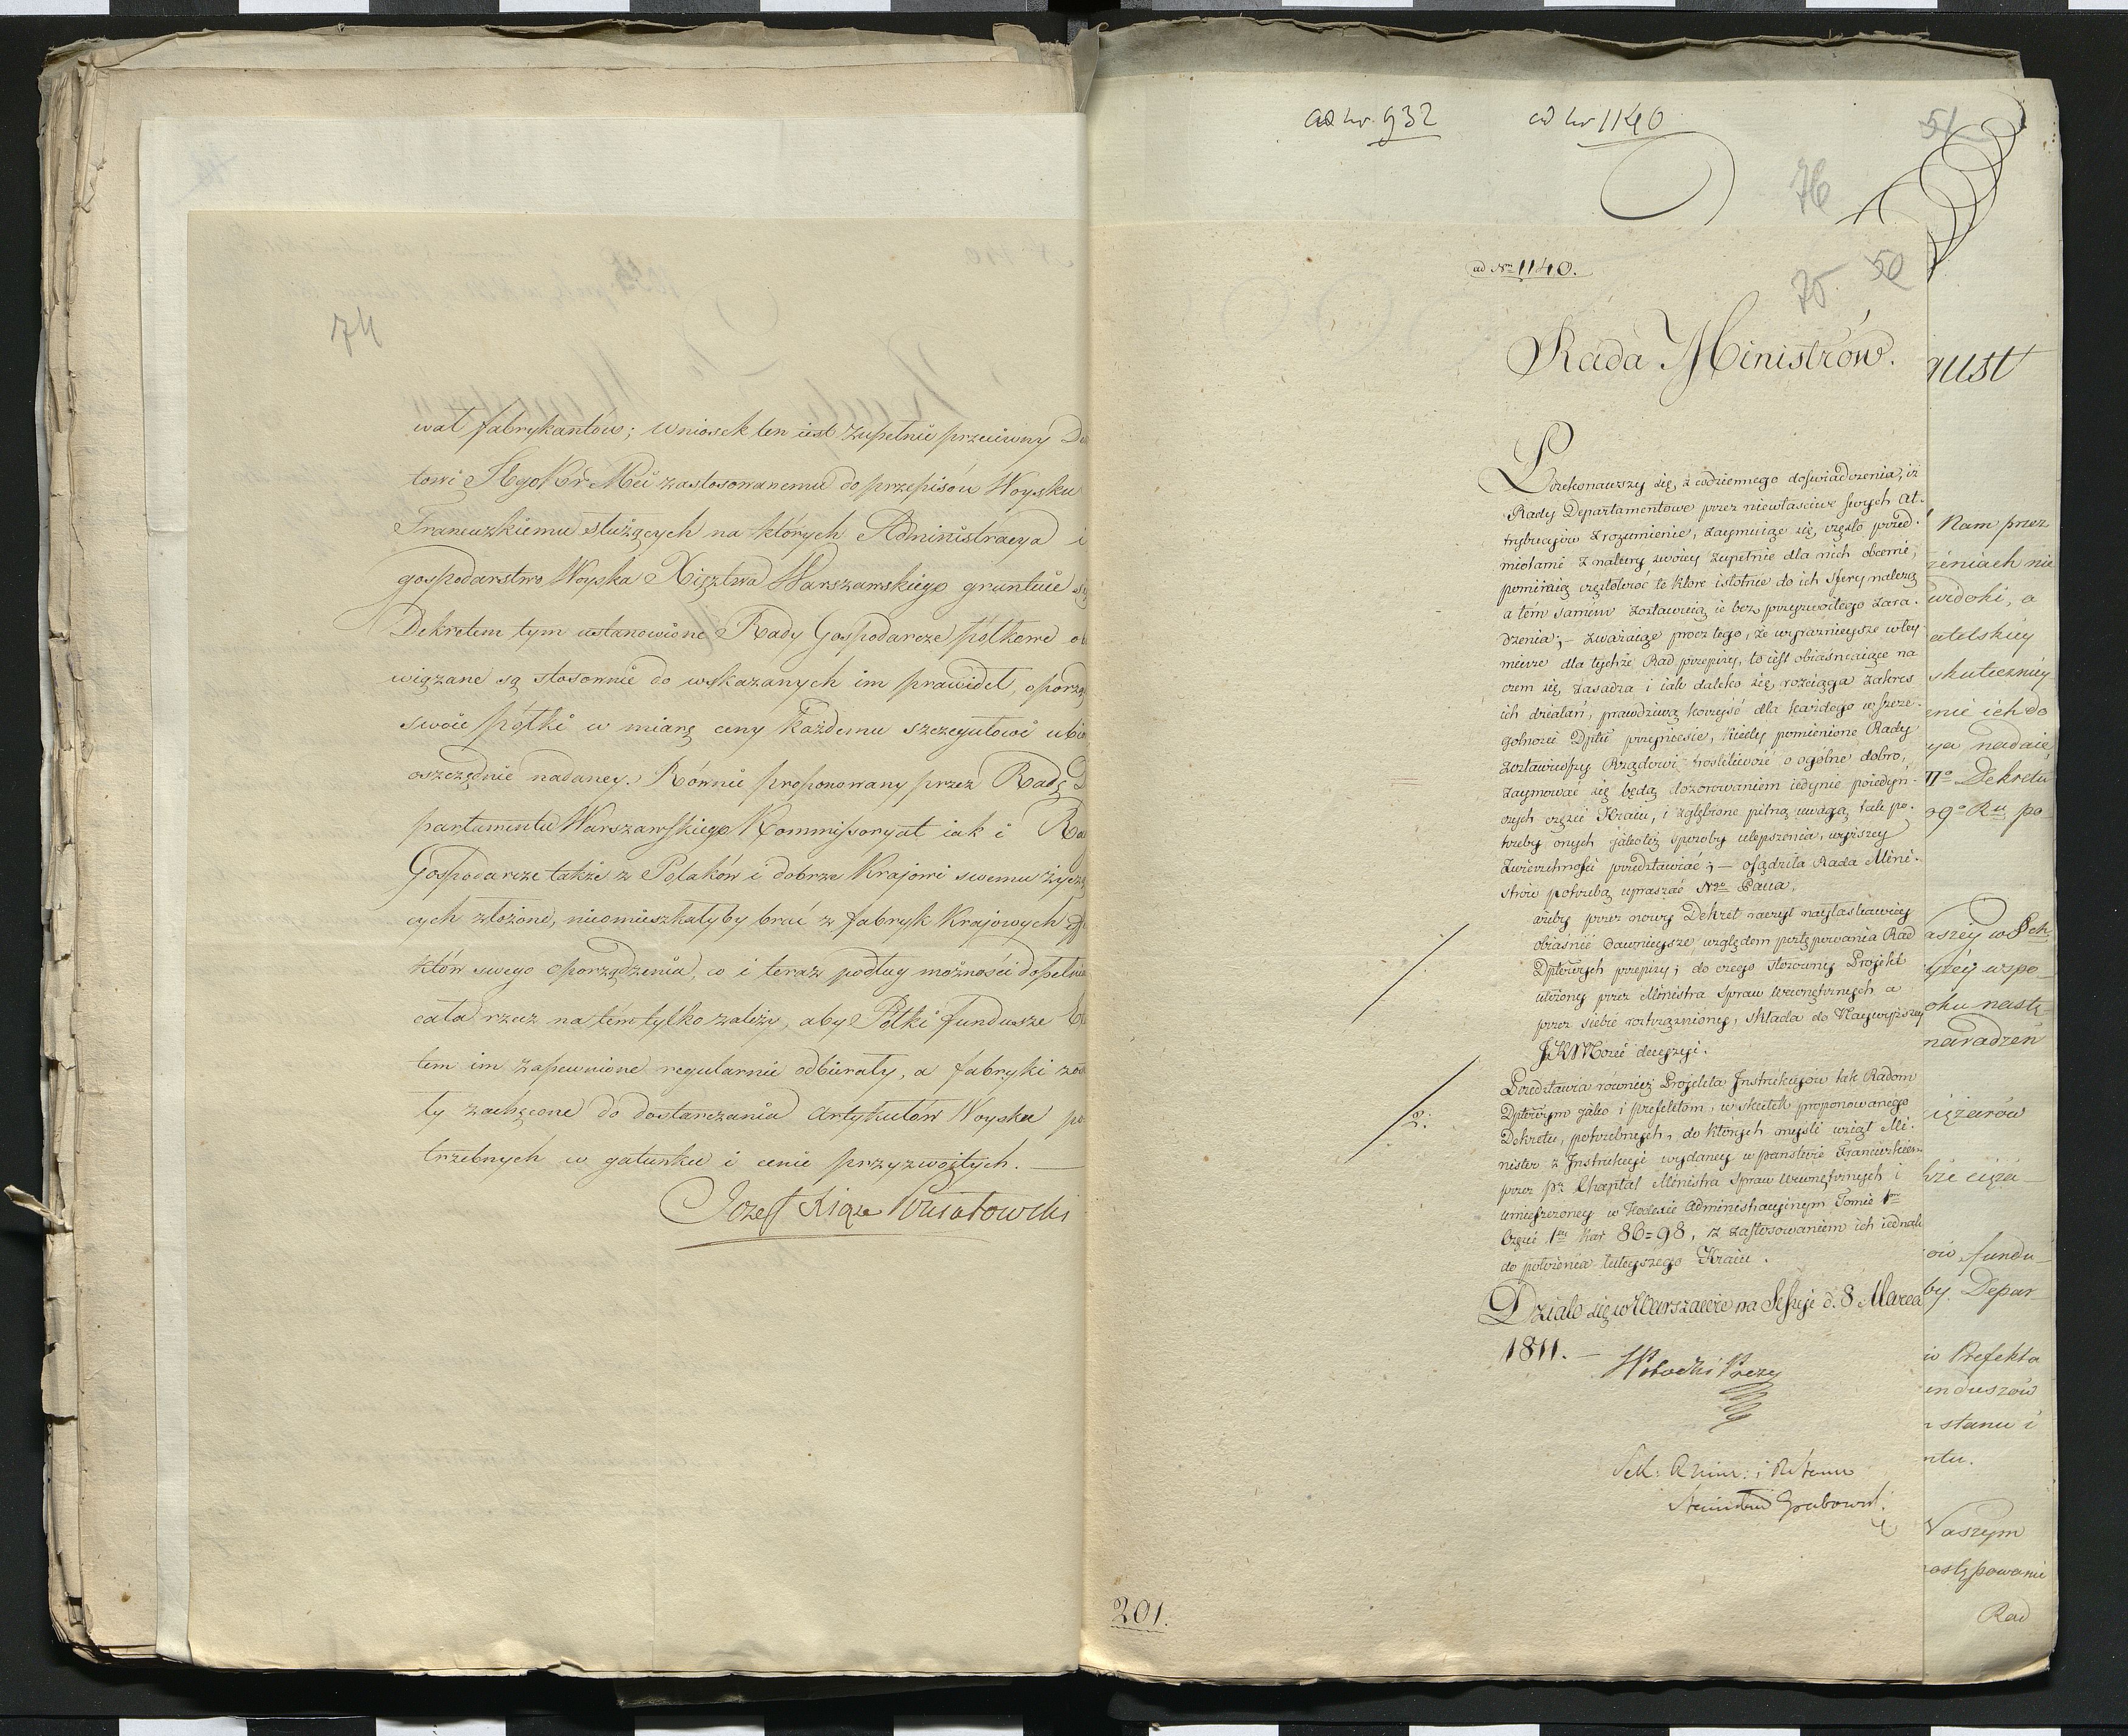 74
wat fabrykantów; Wniosek ten iest zupełnie przeciwny De
towi JegoKr Mci zastosowanemu do przepisów Woysku
Francuzkiemu służących na których Administracya i
gospodarstwo Woyska Xięztwa Warszawskiego gruntuie się
Dekretem tym ustanowione Rady Gospodarcze półkowe ob
wiązane są stosownie do wskazanych im prawideł, oporzą
swoie półki w miarę ceny każdemu szczegułowi ubio
oszczędnie nadaney. Równie proponowany przez Radę D
partamentu Warszawskiego Kommissoryat iak i Ra
Gospodarcze także z Polaków i dobrze Krajowi swemu życzą
cych złożone, nieomieszkałyby brać z fabryk Krajowych eff
któw swego oporządzenia, co i teraz podług możności dopełnia
cała rzecz na tém tylko zależy, aby Półki fundusze Et
tem im zapewnione regularnie odbierały, a fabryki zos
ły zachęcone do dostarczania artykułów Woysku po
trzebnych w gatunku i cenie przyzwoitych. —
Jozef Xiąże Poniatowski
ad nr. 932
ad nr 1140
51
76
ad Nm 1140.
75
50
Rada Ministrów.
Przekonawszy się, z codziennego doświadczenia, iż
Rady Departamentowe przez niewłaściwe swych At-
trybucyiów zrozumienie, zaymuiąc się często przed-
miotami z natury swoiey zupełnie dla nich obcemi,
pominaią częstokroć te które istotnie do ich sfery należą
a tém samém zostawuią ie bez przyzwoitego zara-
dzenia; — zważaiąc procz tego, że wyraźnieysze w tey
mierze dla tychże Rad przepisy, to iest obiaśniaiące na
czem się zasadza i iak daleko się rozciąga zakres
ich działań, prawdziwą korzyść dla każdego w szcze-
golności Dpttu przyniesie, kiedy pomienione Rady
zostawiwszy Rządowi troskliwość o ogólne dobro,
zaymować się będą dozorowaniem iedynie poiedyń-
czych części Kraiu, i zgłębione pilną uwagą tak po-
trzeby onych jakoteż sposoby ulepszenia, wyższey
zwierzchności przedstawiać; — osądziła Rada Mini-
strów potrzebą upraszać Ngo Pana,
ażeby przez nowy Dekret raczył nayłaskawiey
obiaśnić dawnieysze względem postępowania Rad
Dpttowych przepisy; do czego stosowny Projekt
ułożony przez Ministra Spraw Wewnętrznych a
przez siebie roztrząśniony, składa do Naywyższey
JKMości decyzyi.
2.
Przedstawia również Projekta Instrukcyiów tak Radom
Dpttowym jako i prefektom, w skutek proponowanego
Dekretu, potrzebnych, do których myśli wziął Mi-
nister z Instrukcyi wydaney w państwie Francuzkiem
przez Pa Chaptal Ministra Spraw Wewnętrznych i
umieszczoney w Kodexie Administracyinym Tomie 1m
Części 1ey Kar 86=98, z zastosowaniem ich iednak
do położenia tuteyszego Kraiu.
Działo się w Warszawie na Sessyi d. 8 Marca
1811. —
Potocki Prezy
Sek:
Stanisław Grabowski
201.
gust
Nam przez
zeniach nie
widoki, a
atelskiey
skuteczniey
enie ich do
ya nadaie,
IIo Dekretu
Ru po-
aszey w
yżey wspo-
oku nastę-
naradzeń
iężarów
fundu-
by Depar-
Prefekta
unduszów
stanu i
ntu.
Naszym
ostępowanie
Rad